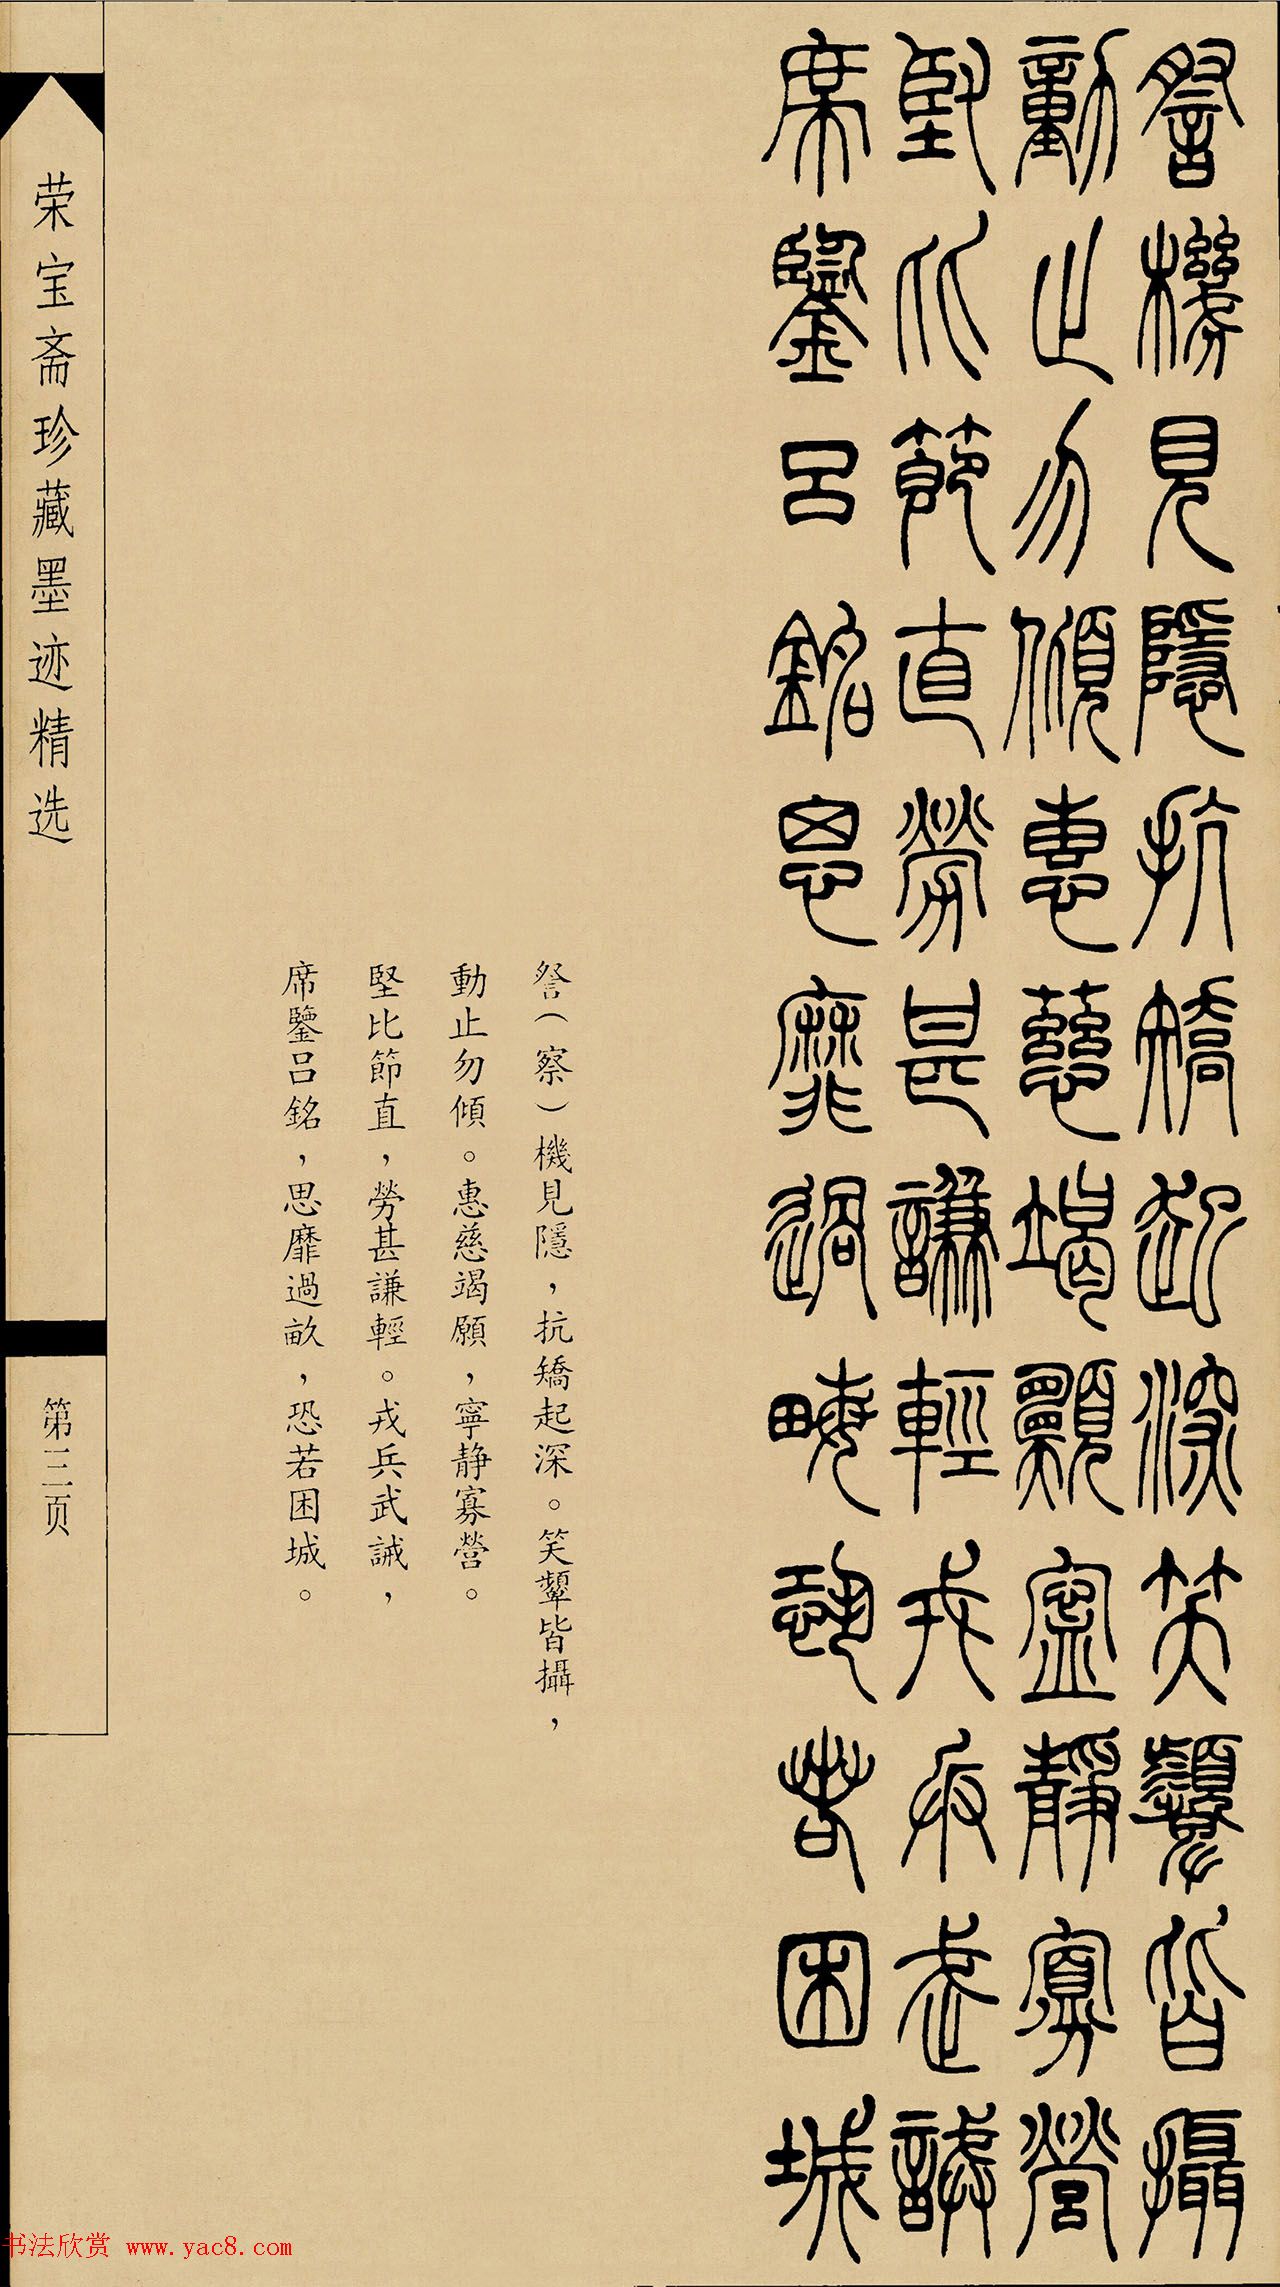 詧機見隱抗矯起深笑顰皆攝
動止勿傾惠慈竭願寧靜寡營
堅比節直勞甚謙輕戎兵武誡
席鑒呂銘思靡過畝恐若困城
詧（察）機見隱，抗矯起深。笑顰皆攝，
動止勿傾。惠慈竭願，寧静寡營。
堅比節直，勞甚謙輕。戎兵武誡，
席鑒呂銘，思靡過畝，恐若困城。
荣宝斋珍藏墨迹精选
第三页
书法欣赏 www.yac8.com